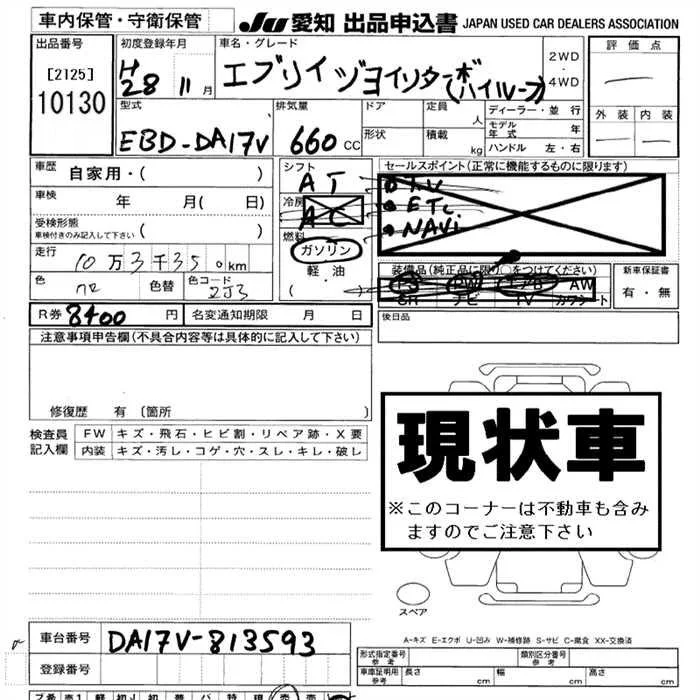 車内保管・守衛保管
JU 愛知 出品申込書 JAPAN USED CAR DEALERS ASSOCIATION
出品番号
[2125]
10130
初度登録年月
H28 11月
車名・グレード
エブリイ ジョインターボ(ハイルーフ)
2WD
・
4WD
評価点
外装 内装
型式
EBD-DA17V
排気量
660 CC
ドア
形状
定員 人
積載 kg
ディーラー・並行
モデル年式 年
ハンドル 左・右
車歴 自家用・( )
車検 年 月( 日)
受検形態
車検付きのみ記入して下さい ( )
走行 10万3千35 km
色 色替 色コード 2J3
シフト
AT
冷房
AC
燃料
ガソリン
・
軽油
( )
セールスポイント(正常に機能するものに限ります)
●TV
●ETC
●NAVi
装備品(純正品に限り○をつけてください)
PS PW エアB AW
SR ナビ TV カワシート
新車保証書
有・無
R券 8400円 名変通知期限 月 日
後日品
注意事項申告欄(不具合内容等は具体的に記入して下さい)
修復歴 有〔箇所 〕
検査員
記入欄
FW キズ・飛石・ヒビ割・リペア跡・X要
内装 キズ・汚し・コゲ・穴・スレ・キレ・破レ
現状車
※このコーナーは不動車も含み
ますのでご注意下さい
スペア
A-キズ E-エクボ U-凹み W-補修跡 S-サビ C-腐食 XX-交換済
車台番号 DA17V-813593
登録番号
形式指定番号
参考
類別区分番号
参考
車庫証明用
参考
長さ cm 幅 cm 高さ cm